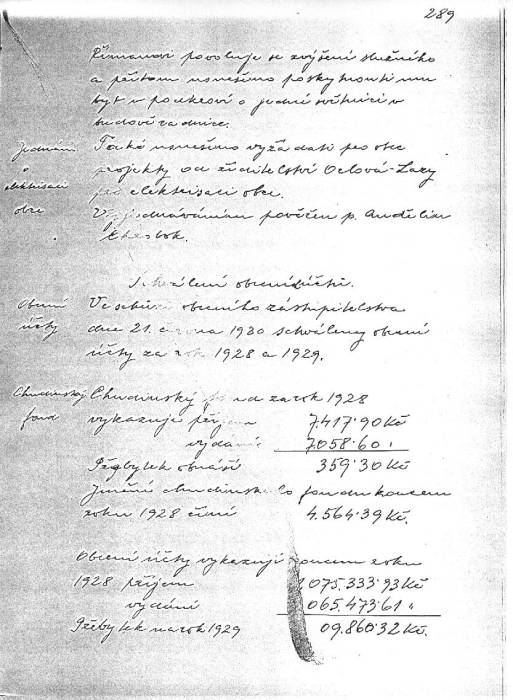 289
povoluje se zvýšení služného
a přitom usneseno poskytnouti mu
byt v o jedné světnici v
budově radnice.
Jednání o elektrisaci obce
Také usneseno vyžádati pro obec
projekty od ředitelství Orlová-Lazy
pro elektrisaci obce.
Vyjednáváním pověřen p. Andělín
Chrobok.
Schválení obecních účtů.
Obecní účty
Ve schůzi obecního zastupitelstva
dne 21. 1930 schváleny obecní
účty za rok 1928 a 1929.
Chudinský fond
Chudinský fond za rok 1928
vykazuje příjem 7.417·90 Kč
vydání 7.058·60 "
Přebytek obnáší 359·30 Kč
Jmění chudinského fondu koncem
roku 1928 činí 4.564·39 Kč.
Obecní účty vykazují koncem roku
1928 příjem 075.333·93 Kč
vydání 065.473·61 "
Přebytek na rok 1929 09.860·32 Kč.